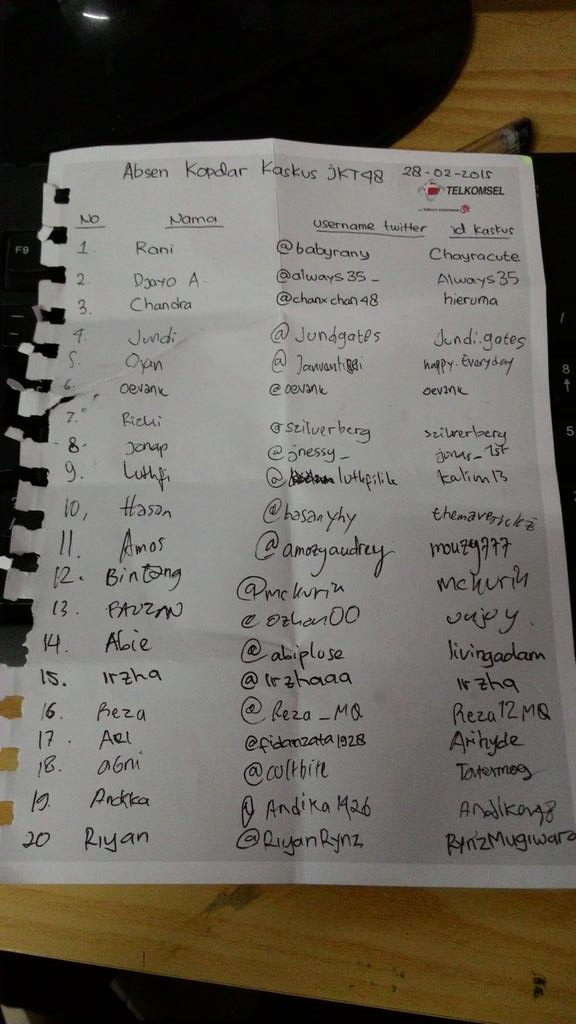 Absen Kopdar Kaskus JKT48 28-02-2015
TELKOMSEL
No Nama username twitter id kaskus
1. Rani @babyrany Chayracute
2. Djayo A. @always35_ Always35
3. Chandra @chanxchan48 hieruma
4. Jundi @Jundgates Jundi.gates
5. Ojan happy.Everyday
6. oevank @oevank oevank
7. Rizki @szilverberg szilverberg
8. Jonap @jnessy_ jonas_1st
9. Luthfi @luthfilik kalim13
10, Hasan @hasanyhy themaverickz
11. Amos @amozyaudrey mouzy777
12. Bintang @mckurin mckurin
13. FAUZAN @ozhan00
14. Abie @abiplose livingadam
15. irzha @irzhaaa irzha
16. Reza @Reza_MQ Reza12MQ
17. ARI @fidanzata1928 Arihyde
18. agni @cultbite
19. Andika @Andika1426 Andikar48
20 Riyan @RiyanRynz RynzMugiwara
F9
8
5